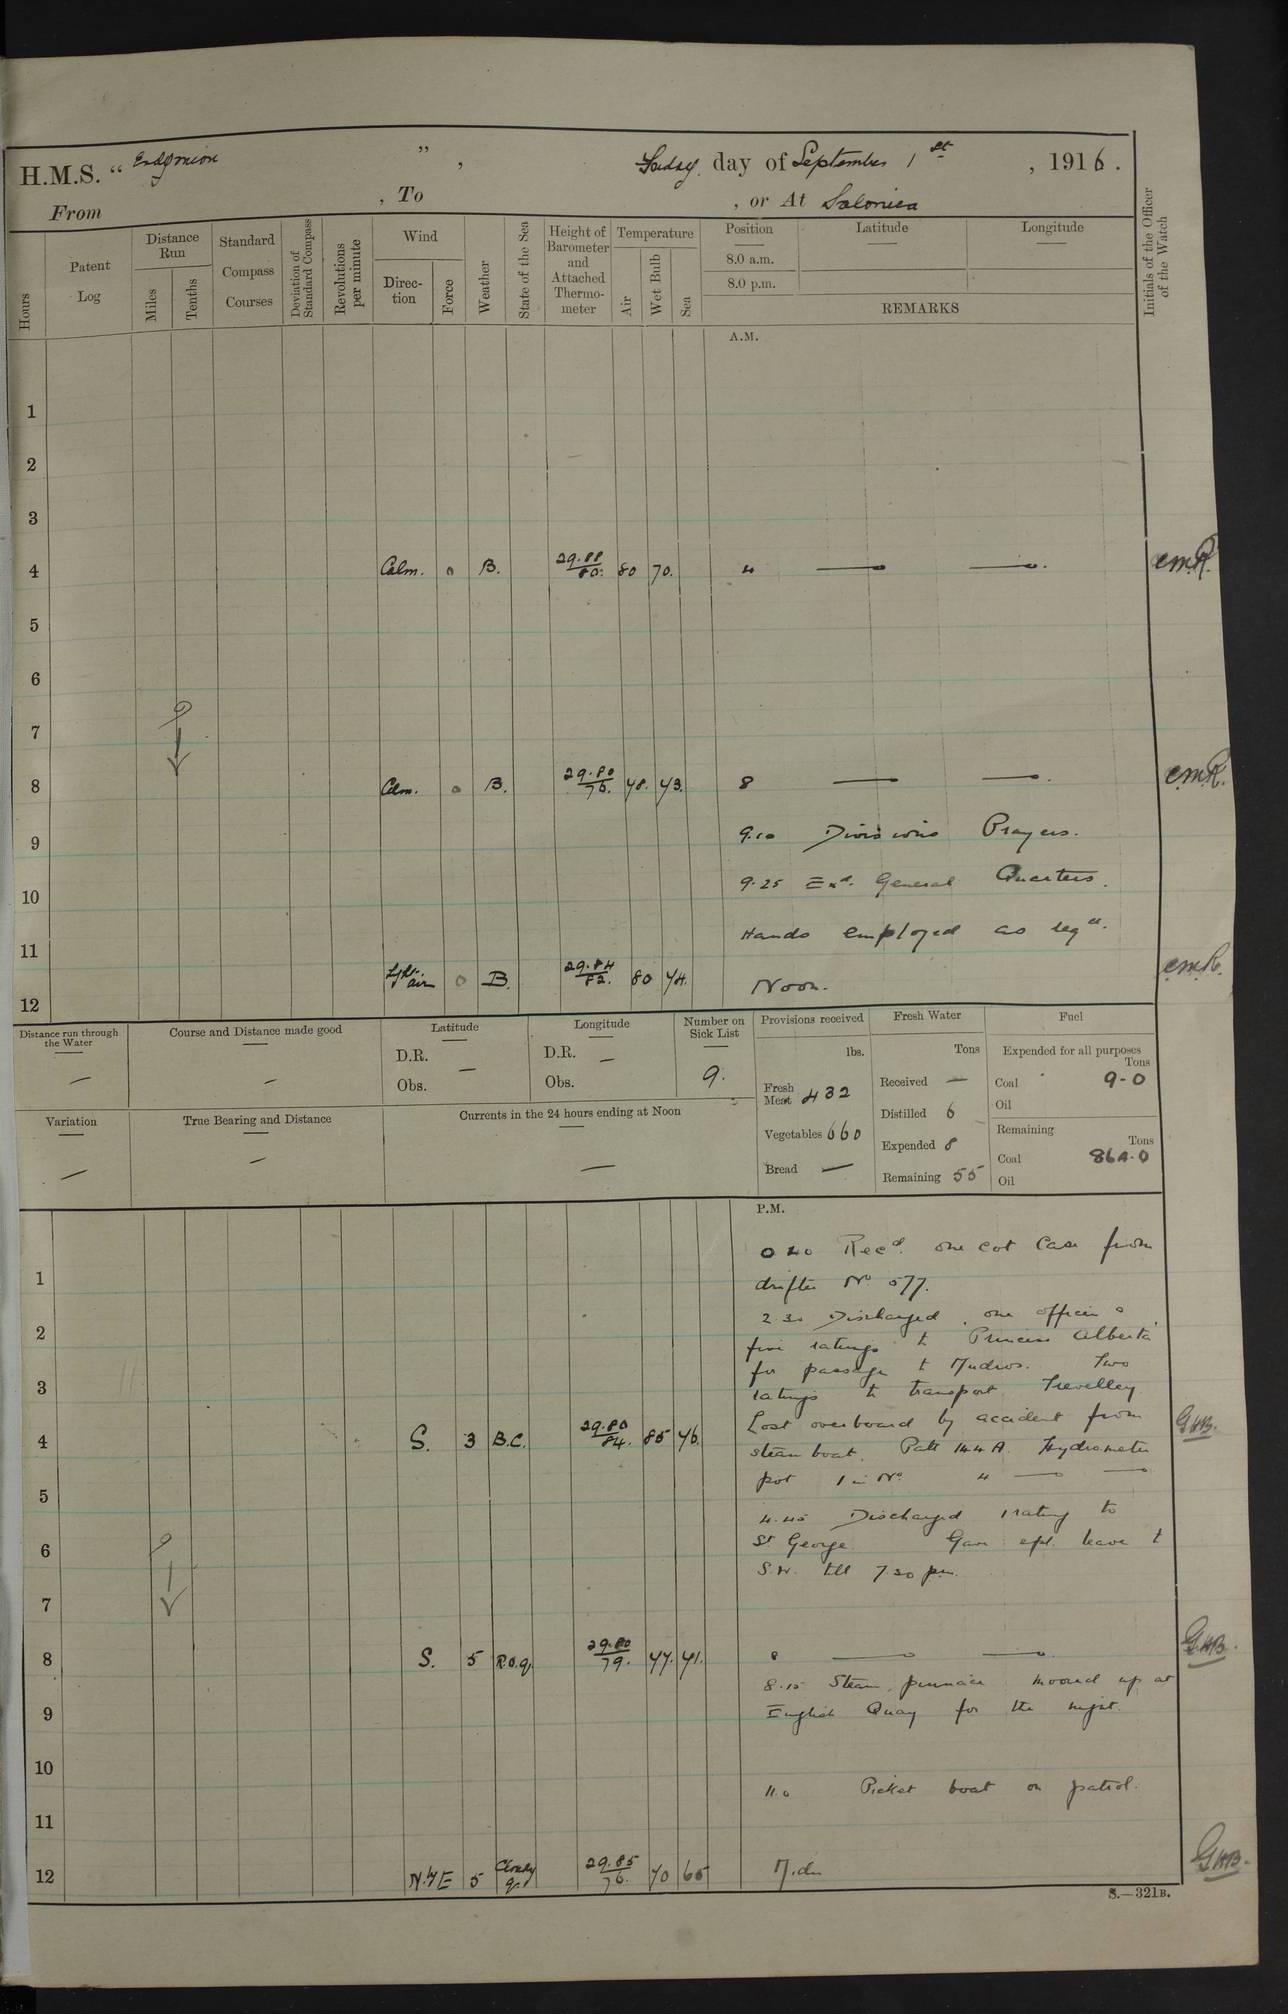 H.M.S. "Endymion", Friday day of September 1st, 1916.
From , To , or At Salonica
Hours
Patent Log
Distance Run
Miles
Tenths
Standard Compass Courses
Deviation of Standard Compass
Revolutions per minute
Wind
Direction
Force
Weather
State of the Sea
Height of Barometer and Attached Thermometer
Temperature
Air
Wet Bulb
Sea
Position
8.0 a.m.
8.0 p.m.
Latitude
Longitude
REMARKS
Initials of the Officer of the Watch
A.M.
1
2
3
4 Calm. 0 B. 29.88 80. 80 70. 4 — — . C.M.R.
5
6
7
8 Calm. 0 B. 29.80 76. 78. 73. 8 — — . C.M.R.
9 9.10 Divisions Prayers.
10 9.25 Exd. General Quarters.
11 Hands employed as reqd.
12 Lght. air 0 B. 29.84 82. 80 74. Noon. C.M.R.
Distance run through the Water —
Course and Distance made good —
Latitude
D.R. —
Obs.
Longitude
D.R. —
Obs.
Number on Sick List
9.
Provisions received
lbs.
Fresh Meat 432
Vegetables 660
Bread —
Fresh Water
Tons
Received —
Distilled 6
Expended 8
Remaining 55
Fuel
Expended for all purposes
Tons
Coal 9-0
Oil
Remaining
Tons
Coal 864.0
Oil
Variation —
True Bearing and Distance —
Currents in the 24 hours ending at Noon —
P.M.
0 40 Recd. one cot case from
1 drifter No. 577.
2.30 Discharged one officer &
2 five ratings to Princess Alberta
for passage to Mudros. Two
3 ratings to transport Trevelley
Lost overboard by accident from
4 S. 3 B.C. 29.80 84. 85 76. steam boat. Patt 144A. Hydrometer G.H.B.
pot 1 in No. 4 — —
5
4.45 Discharged 1 rating to
6 St George Gave spl. leave to
S.W. till 7.30 pm.
7
8 S. 5 R.O.q. 29.80 79. 77. 71. 8 — — G.H.B.
8.15 Steam pinnace moored up at
9 English Quay for the night.
10
11.0 Picket boat on patrol.
11
12 N.byE 5 Cloudy q. 29.85 76. 70 65 Mdn. G.H.B.
S.—321B.